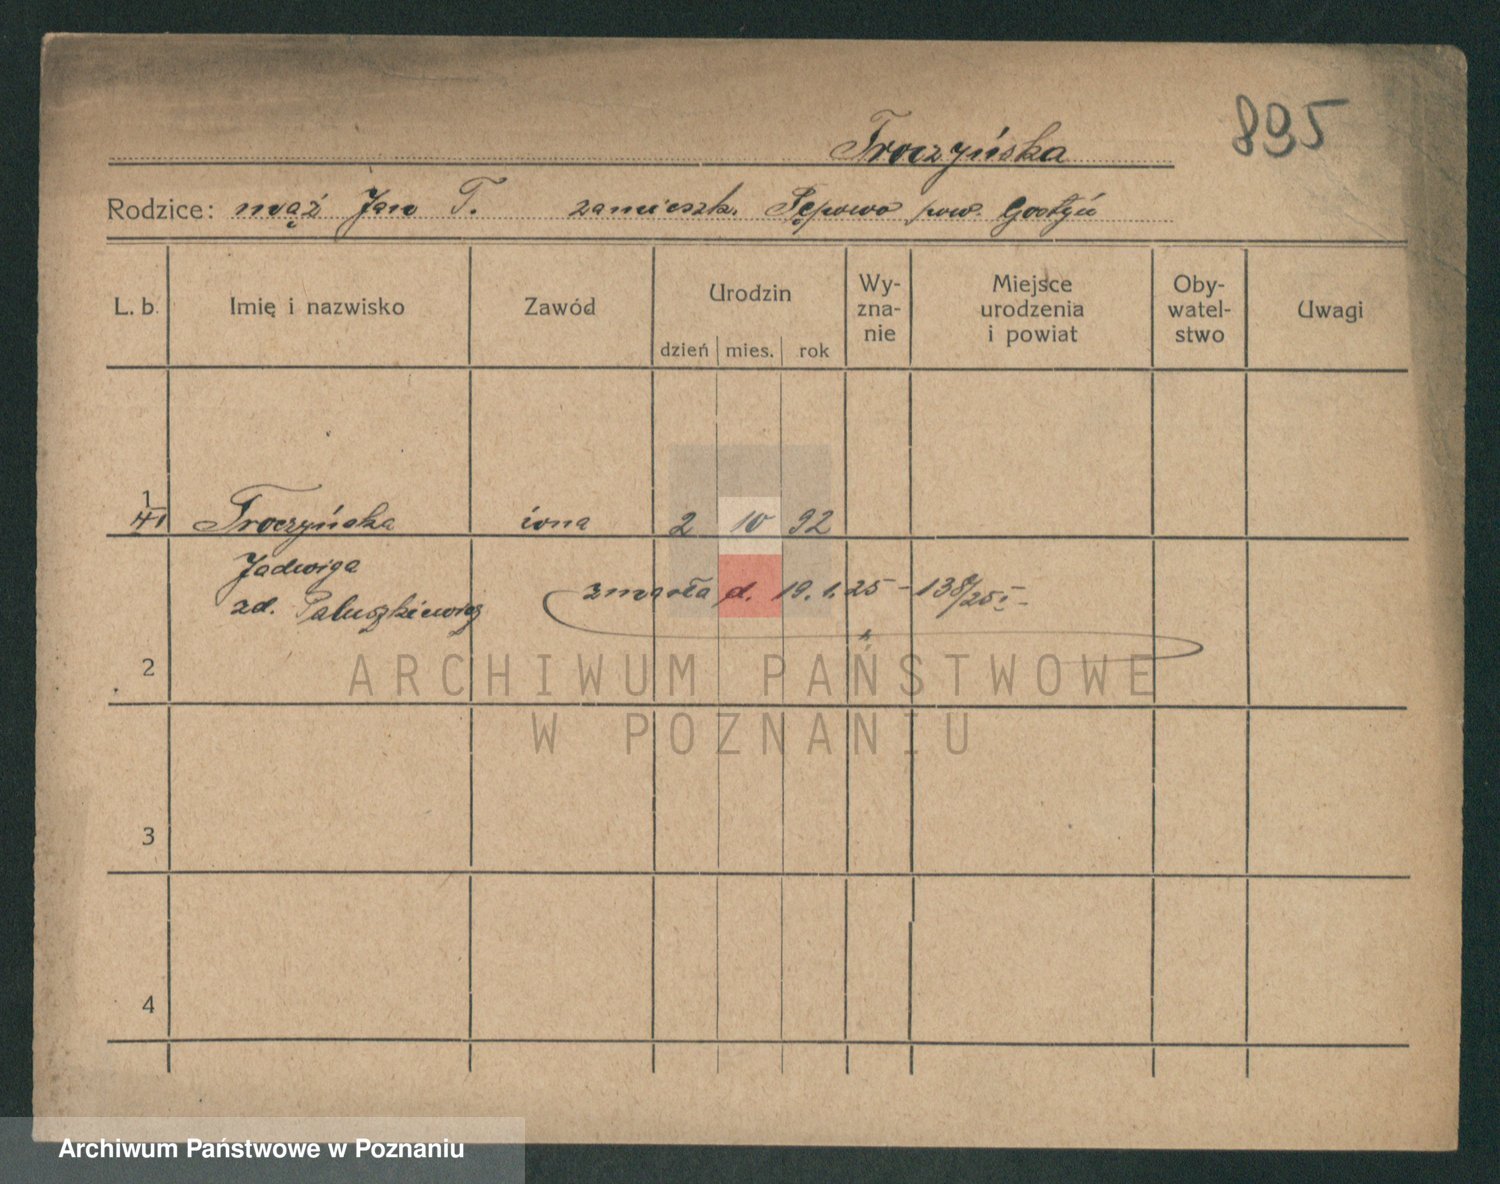 Troczyńska
895
Rodzice: mąż Jan T. zamieszk. Pępowo pow. Gostyń
L. b. Imię i nazwisko Zawód Urodzin Wy-zna-nie Miejsce urodzenia i powiat Oby-watel-stwo Uwagi
dzień mies. rok
1
Troczyńska żona 2 10 92
Jadwiga
zmarła d. 19.1.25 -
zd. Paluszkiewicz
2
ARCHIWUM PAŃSTWOWE
W POZNANIU
3
4
Archiwum Państwowe w Poznaniu